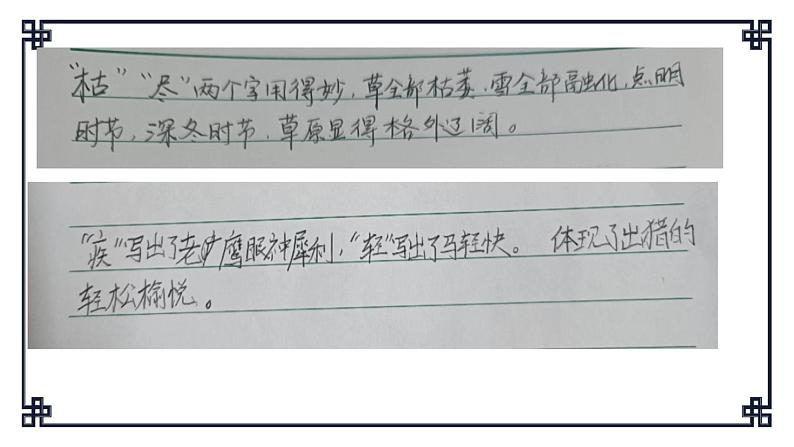 “枯”“尽”两个字用得妙，草全部枯萎，雪全部融化，点明
时节，深冬时节，草原显得格外辽阔。
“疾”写出了老鹰眼神犀利，“轻”写出了马轻快。 体现了出猎的
轻松愉悦。